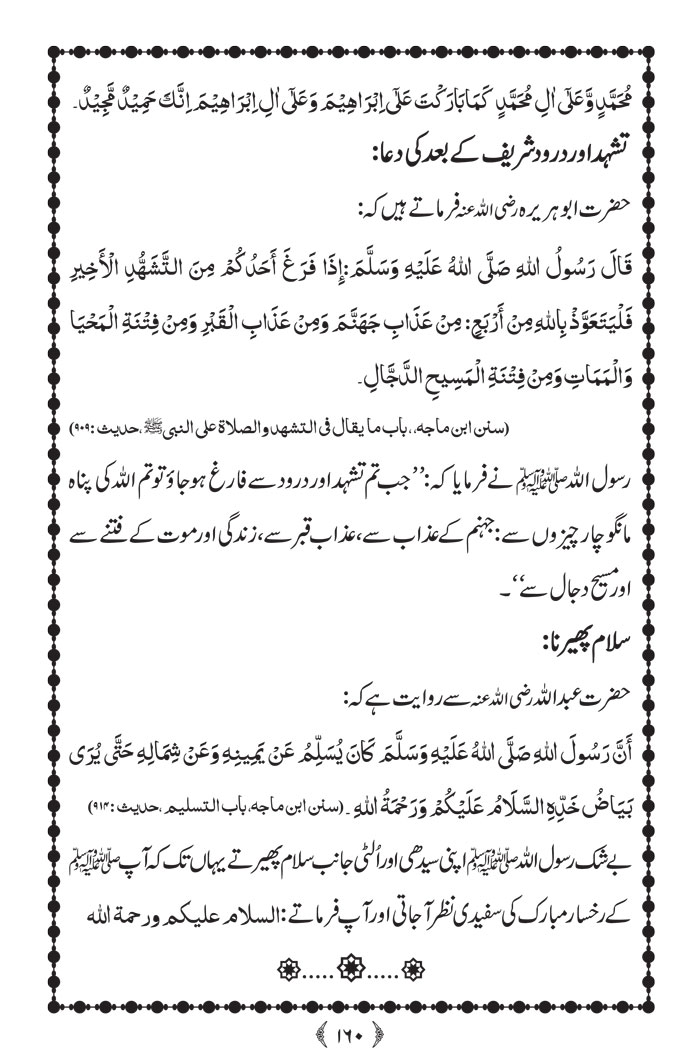 مُحَمَّدٍ وَّعَلٰٓی اٰلِ مُحَمَّدٍ کَمَا بَارَکْتَ عَلٰٓی اِبْرَاهِیْمَ وَعَلٰٓی اٰلِ اِبْرَاهِیْمَ اِنَّكَ حَمِیْدٌ مَّجِیْدٌ۔
تشہد اور درود شریف کے بعد کی دعا:
حضرت ابو ہریرہ رضی اللہ عنہ فرماتے ہیں کہ:
قَالَ رَسُولُ اللهِ صَلَّى اللهُ عَلَيْهِ وَسَلَّمَ: إِذَا فَرَغَ أَحَدُكُمْ مِنَ التَّشَهُّدِ الْأَخِيرِ
فَلْيَتَعَوَّذْ بِاللهِ مِنْ أَرْبَعٍ: مِنْ عَذَابِ جَهَنَّمَ وَمِنْ عَذَابِ الْقَبْرِ وَمِنْ فِتْنَةِ الْمَحْيَا
وَالْمَمَاتِ وَمِنْ فِتْنَةِ الْمَسِيحِ الدَّجَّالِ۔
(سنن ابن ماجہ،، باب ما یقال فی التشهد والصلاة علی النبی ﷺ، حدیث: ۹۰۹)
رسول اللہ ﷺ نے فرمایا کہ: ’’جب تم تشہد اور درود سے فارغ ہو جاؤ تو تم اللہ کی پناہ
مانگو چار چیزوں سے: جہنم کے عذاب سے، عذاب قبر سے، زندگی اور موت کے فتنے سے
اور مسیح دجال سے‘‘۔
سلام پھیرنا:
حضرت عبداللہ رضی اللہ عنہ سے روایت ہے کہ:
أَنَّ رَسُولَ اللهِ صَلَّى اللهُ عَلَيْهِ وَسَلَّمَ كَانَ يُسَلِّمُ عَنْ يَمِينِهِ وَعَنْ شِمَالِهِ حَتَّى يُرَى
بَيَاضُ خَدِّهِ السَّلَامُ عَلَيْكُمْ وَرَحْمَةُ اللهِ۔ (سنن ابن ماجہ، باب التسلیم، حدیث: ۹۱۴)
بے شک رسول اللہ ﷺ اپنی سیدھی اور اُلٹی جانب سلام پھیرتے یہاں تک کہ آپ ﷺ
کے رخسار مبارک کی سفیدی نظر آجاتی اور آپ فرماتے: السلام علیکم ورحمة الله
۱۶۰